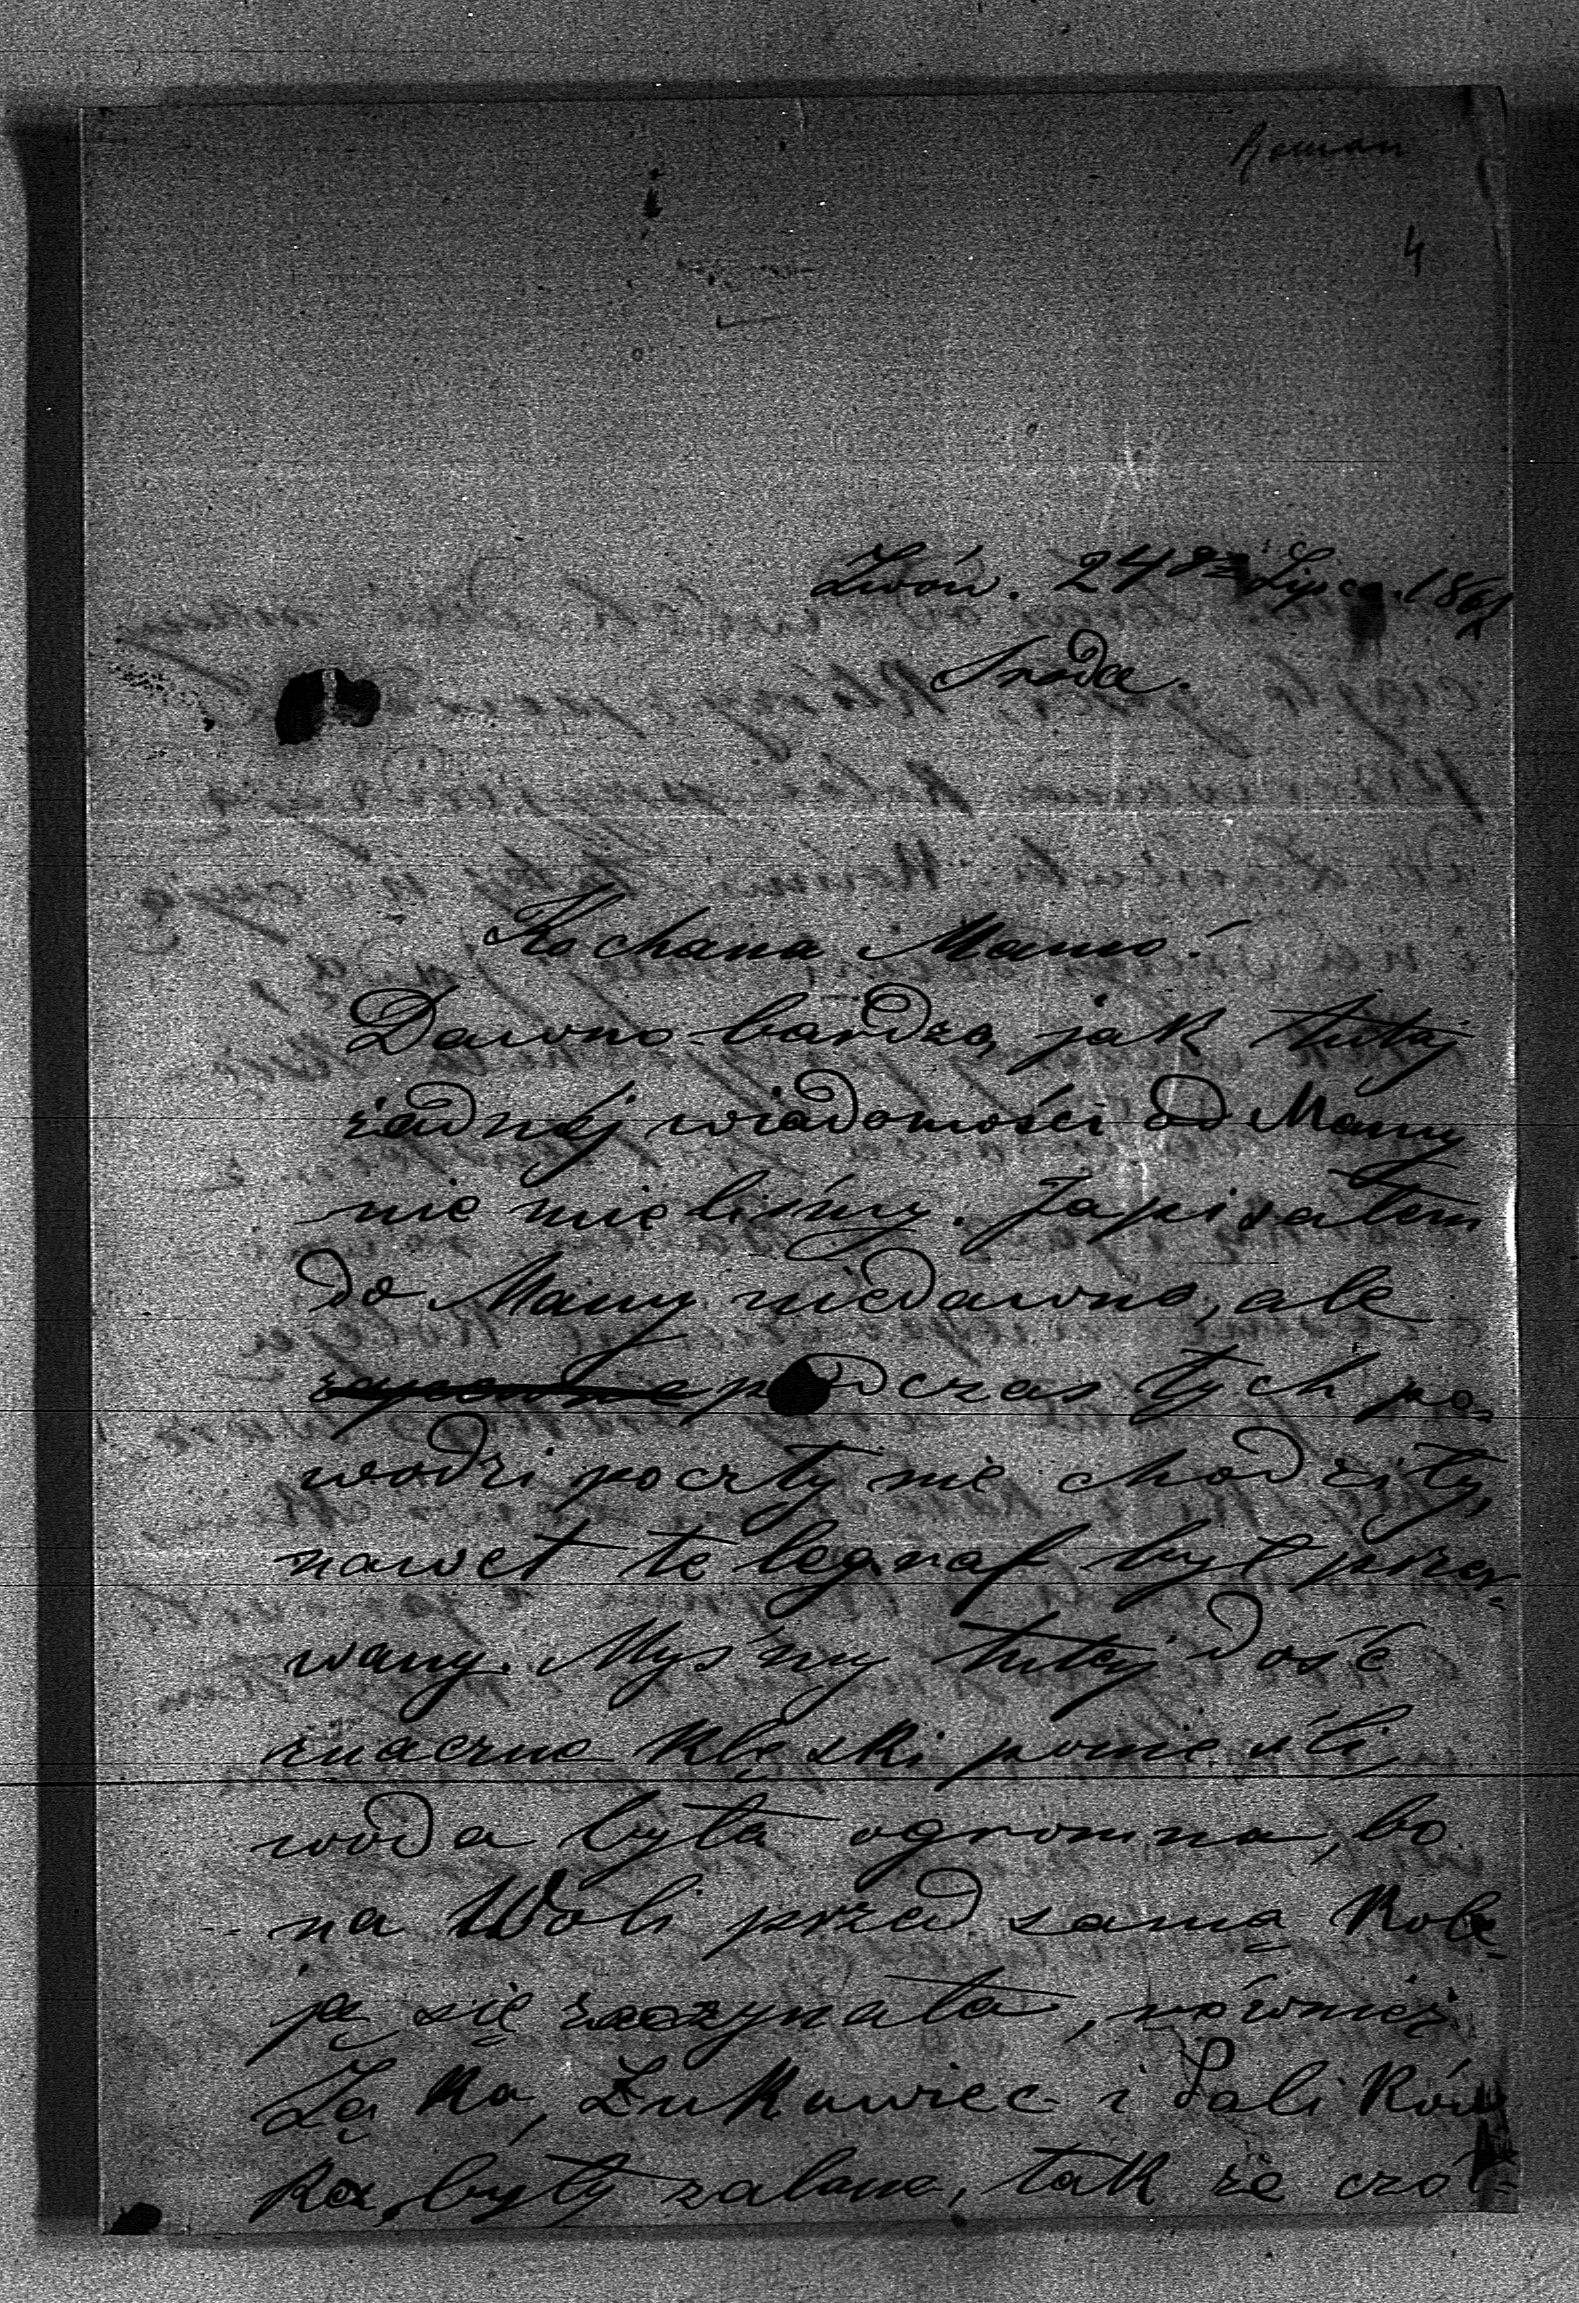 Roman
4
Lwów. 24go Lipca. 1861
Sroda.
Kochana Mamo!
Dawno bardzo, jak tutaj
żadnéj wiadomości od Mamy
nie mieliśmy. Ja pisałem
do Mamy niedawno, ale
podczas tych po-
wodzi poczty nie chodziły,
nawet telegraf był prze-
wany. Myśmy tutej dość
znaczne klęski ponieśli,
woda była ogromna, bo
na Woli przed samą kole-
ją się zaczynała, również
Łąka, Żukowiec i Palików-
ka, były zalane, tak że czó-